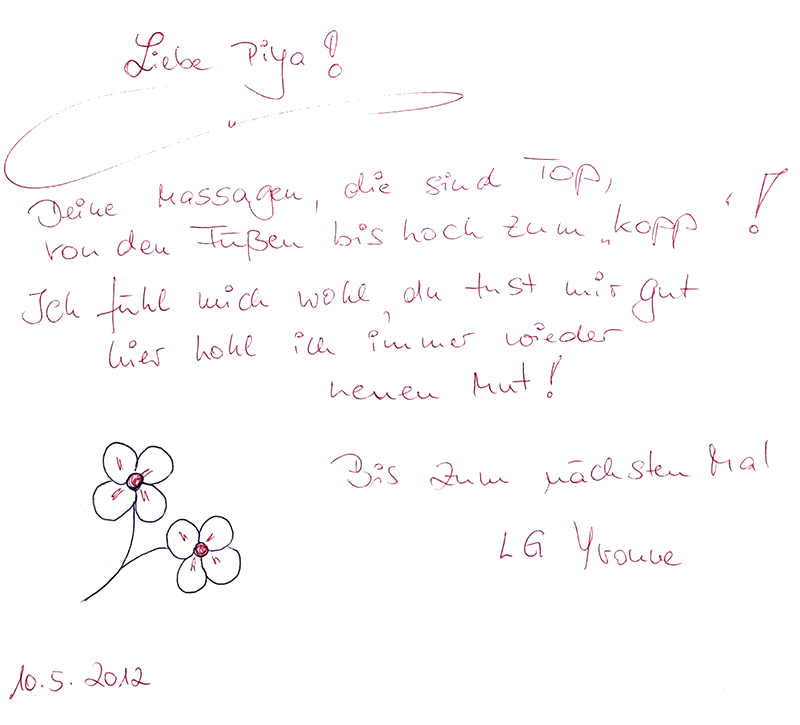 Liebe Piya!
Deine Massagen, die sind Top,
von den Füßen bis hoch zum „Kopp“!
Ich fühl mich wohl, du tust mir gut
hier hohl ich immer wieder
neuen Mut!
Bis zum nächsten Mal
LG Yvonne
10.5.2012